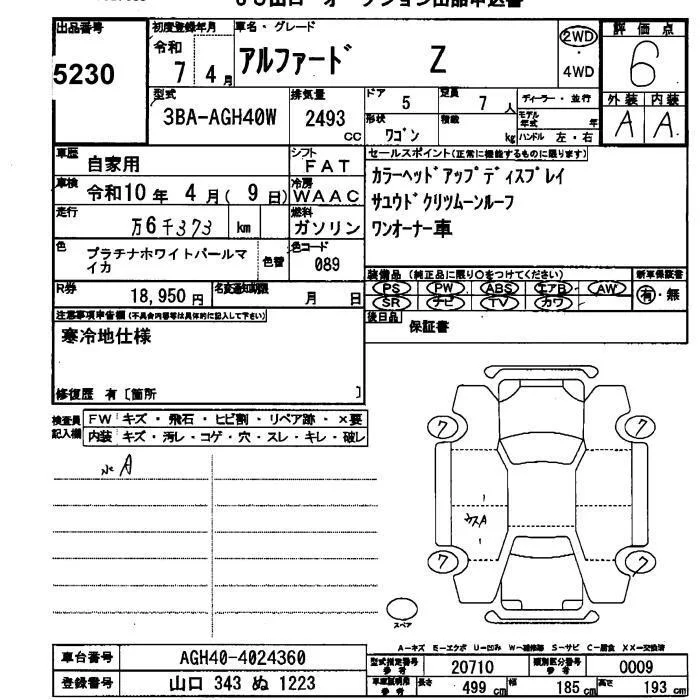 出品番号
5230
初度登録年月
令和
7 4月
車名・グレード
アルファード Z
2WD
・
4WD
評価点
6
型式
3BA-AGH40W
排気量
2493
CC
ドア
5
定員
7人
形状
ワゴン
積載
kg
ディーラー・並行
モデル年式
年
ハンドル 左・右
外装 内装
A A
車歴
自家用
シフト
FAT
車検
令和10年 4月( 9日)
冷房
WAAC
走行
万6千373 km
燃料
ガソリン
色
プラチナホワイトパールマイカ
色替
色コード
089
R券
18,950円
名変通知期限
月 日
セールスポイント(正常に機能するものに限ります)
カラーヘッドアップディスプレイ
サユウドクリツムーンルーフ
ワンオーナー車
装備品(純正品に限り○をつけてください)
PS PW ABS エアB AW
SR ナビ TV カワ
新車保証書
有・無
後日品
保証書
注意事項申告欄(不具合内容等は具体的に記入して下さい)
寒冷地仕様
修復歴 有〔箇所 〕
検査員記入欄
FW キズ・飛石・ヒビ割・リペア跡・×要
内装 キズ・汚レ・コゲ・穴・スレ・キレ・破レ
A
7
7
7
7
スペア
A-キズ E-エクボ U-凹み W-補修跡 S-サビ C-腐食 XX-交換済
車台番号
AGH40-4024360
登録番号
山口 343 ぬ 1223
型式指定番号
参考
20710
類別区分番号
参考
0009
車庫証明用
参考
長さ
499 cm
幅
185 cm
高さ
193 cm